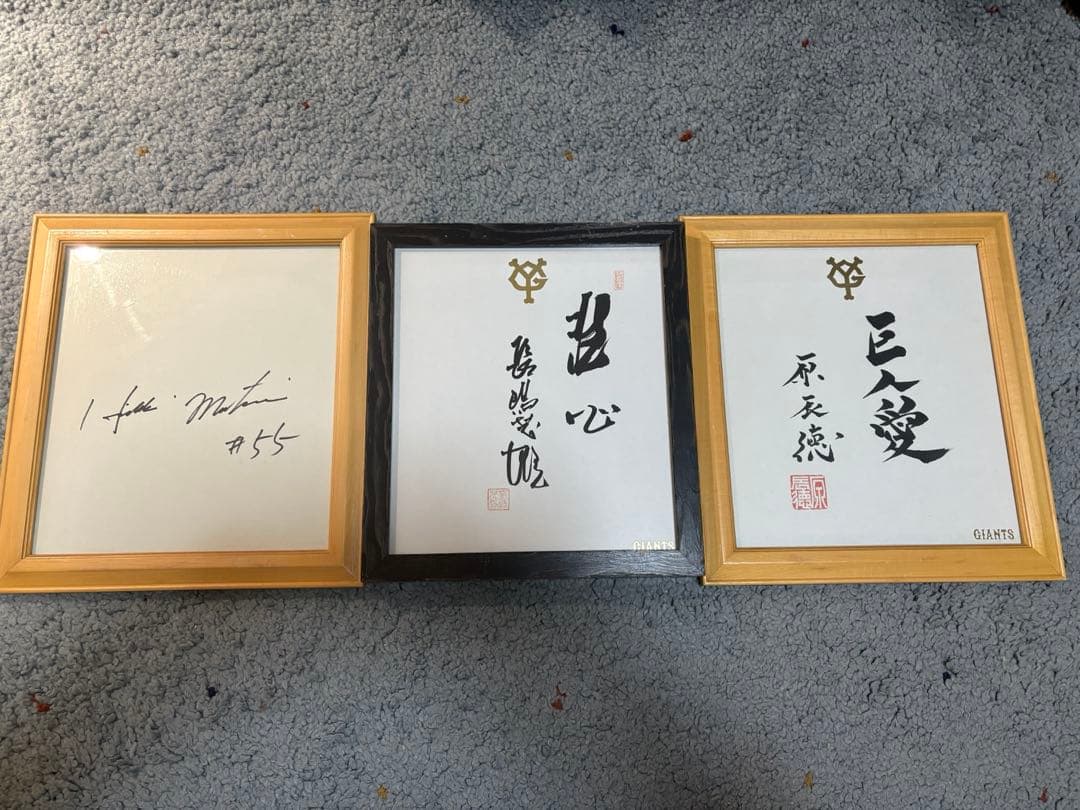 Hideki Matsui
#55
YG
心
長嶋茂雄
GIANTS
YG
巨人愛
原辰徳
原辰徳
GIANTS